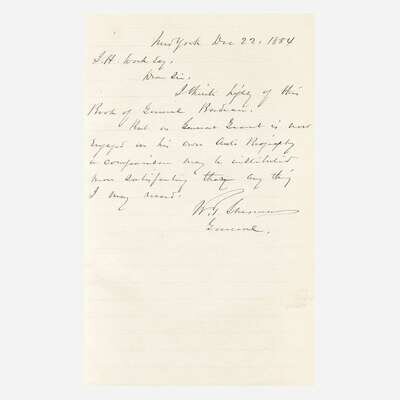 New York Dec 22, 1884
Esq.
Dear Sir,
I think highly of this
Book of General Badeau.
But as General Grant is now
engaged on his own Auto Biography
a comparison may be instituted
more satisfactory than any thing
I may record.
W. T. Sherman
General.